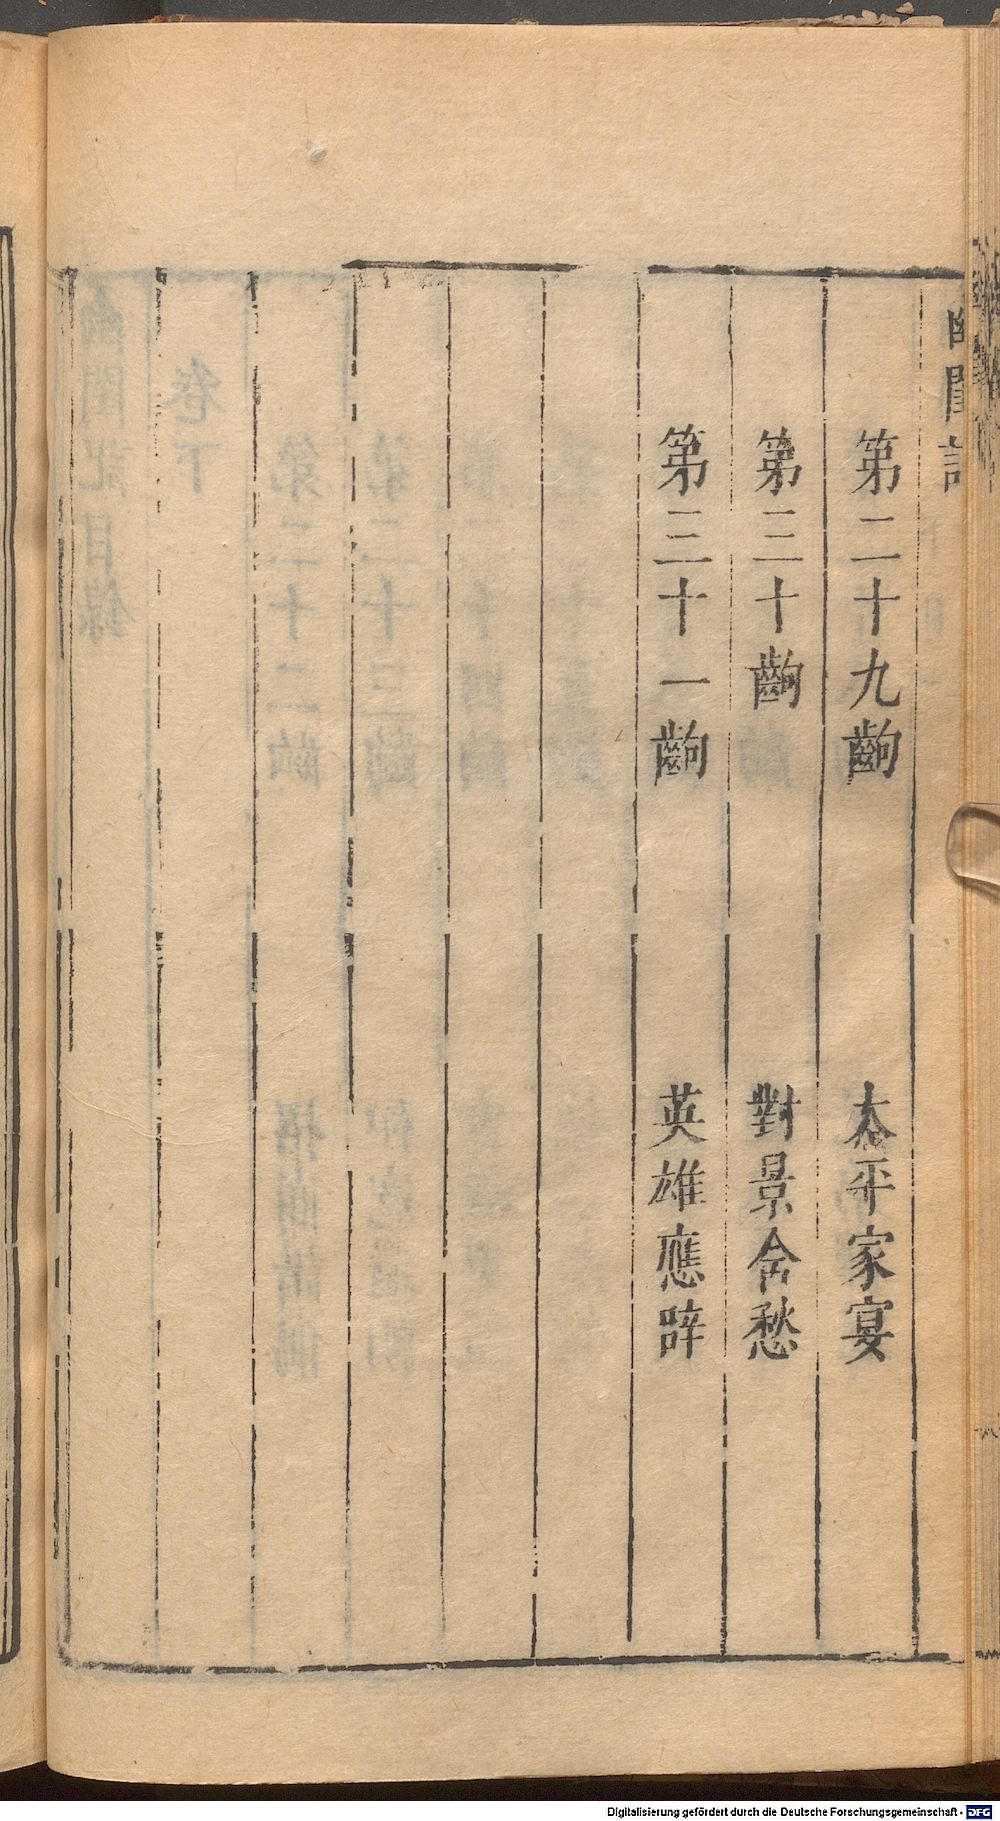 幽閨記
第二十九齣　太平家宴
第三十齣　對景含愁
第三十一齣　英雄應辟
Digitalisierung gefördert durch die Deutsche Forschungsgemeinschaft - DFG